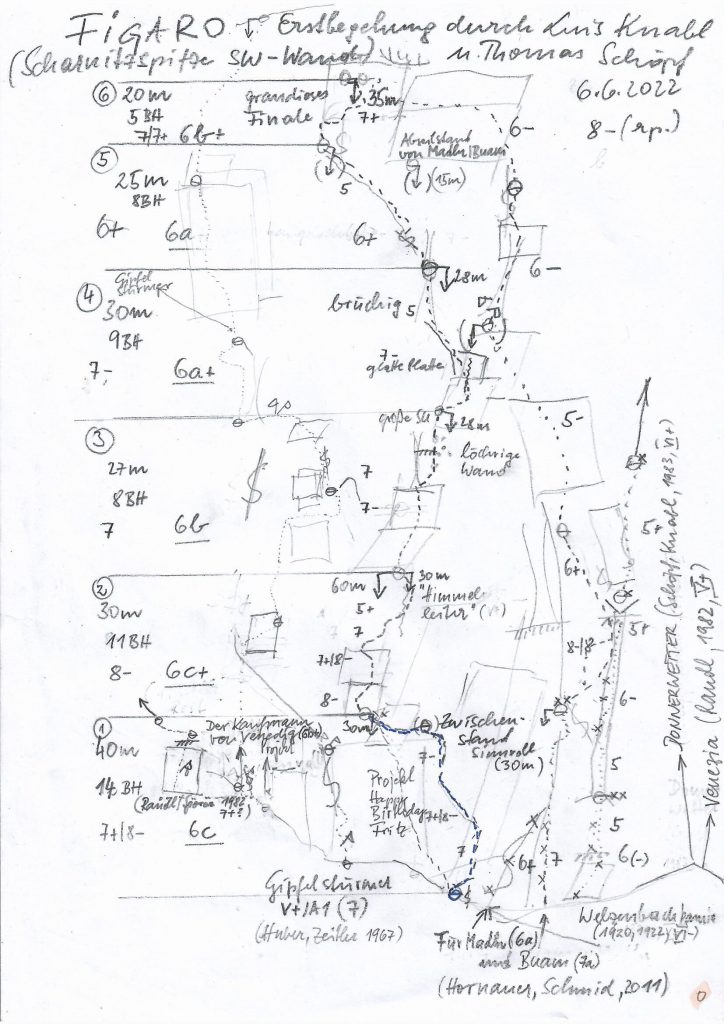 FIGARO Erstbegehung durch Luis Knabl
(Scharnitzspitze SW-Wand) u. Thomas Schöpf
6.6.2022
8-(rp.)
⑥ 20m
5BH
7/7+ 6b+
grandioses
Finale
35m
7+
6-
⑤
25m
8BH
6+ 6a
5
6+
Abseilstand
von Madln/Buam
(15m)
28m
6-
Gipfel
stürmer
④
30m
9BH
7- 6a+
brüchig 5
7-
glatte Platte
große SU
28m
5-
③
27m
8BH
7 6b
7
7-
löchrige
Wand
5+
②
30m
11BH
8- 6c+
60m
30m
5+
7
7+/8-
8-
"Himmel
leiter"
6+
8-/8
5+
6-
①
40m
14BH
7+/8- 6c
Der Kaufmann
von Venedig (6b+)
Projekt
30m
Zwischen-
stand
(30m)
7-
7+/8-
7
Projekt
Happy
Birthday
Fritz
5
5
6(-)
6+
7
Gipfelstürmer
V+/A1 (7)
(Huber, Zeitler 1967)
Für Madln (6a)
und Buam (7a)
(Hornauer, Schmid, 2011)
Welzenbachkamin
(1920, 1922, VI-)
DONNERWETTER (Schöpf, Knabl, 1983, VI+)
Venezia (Randl, 1982, V+)
0